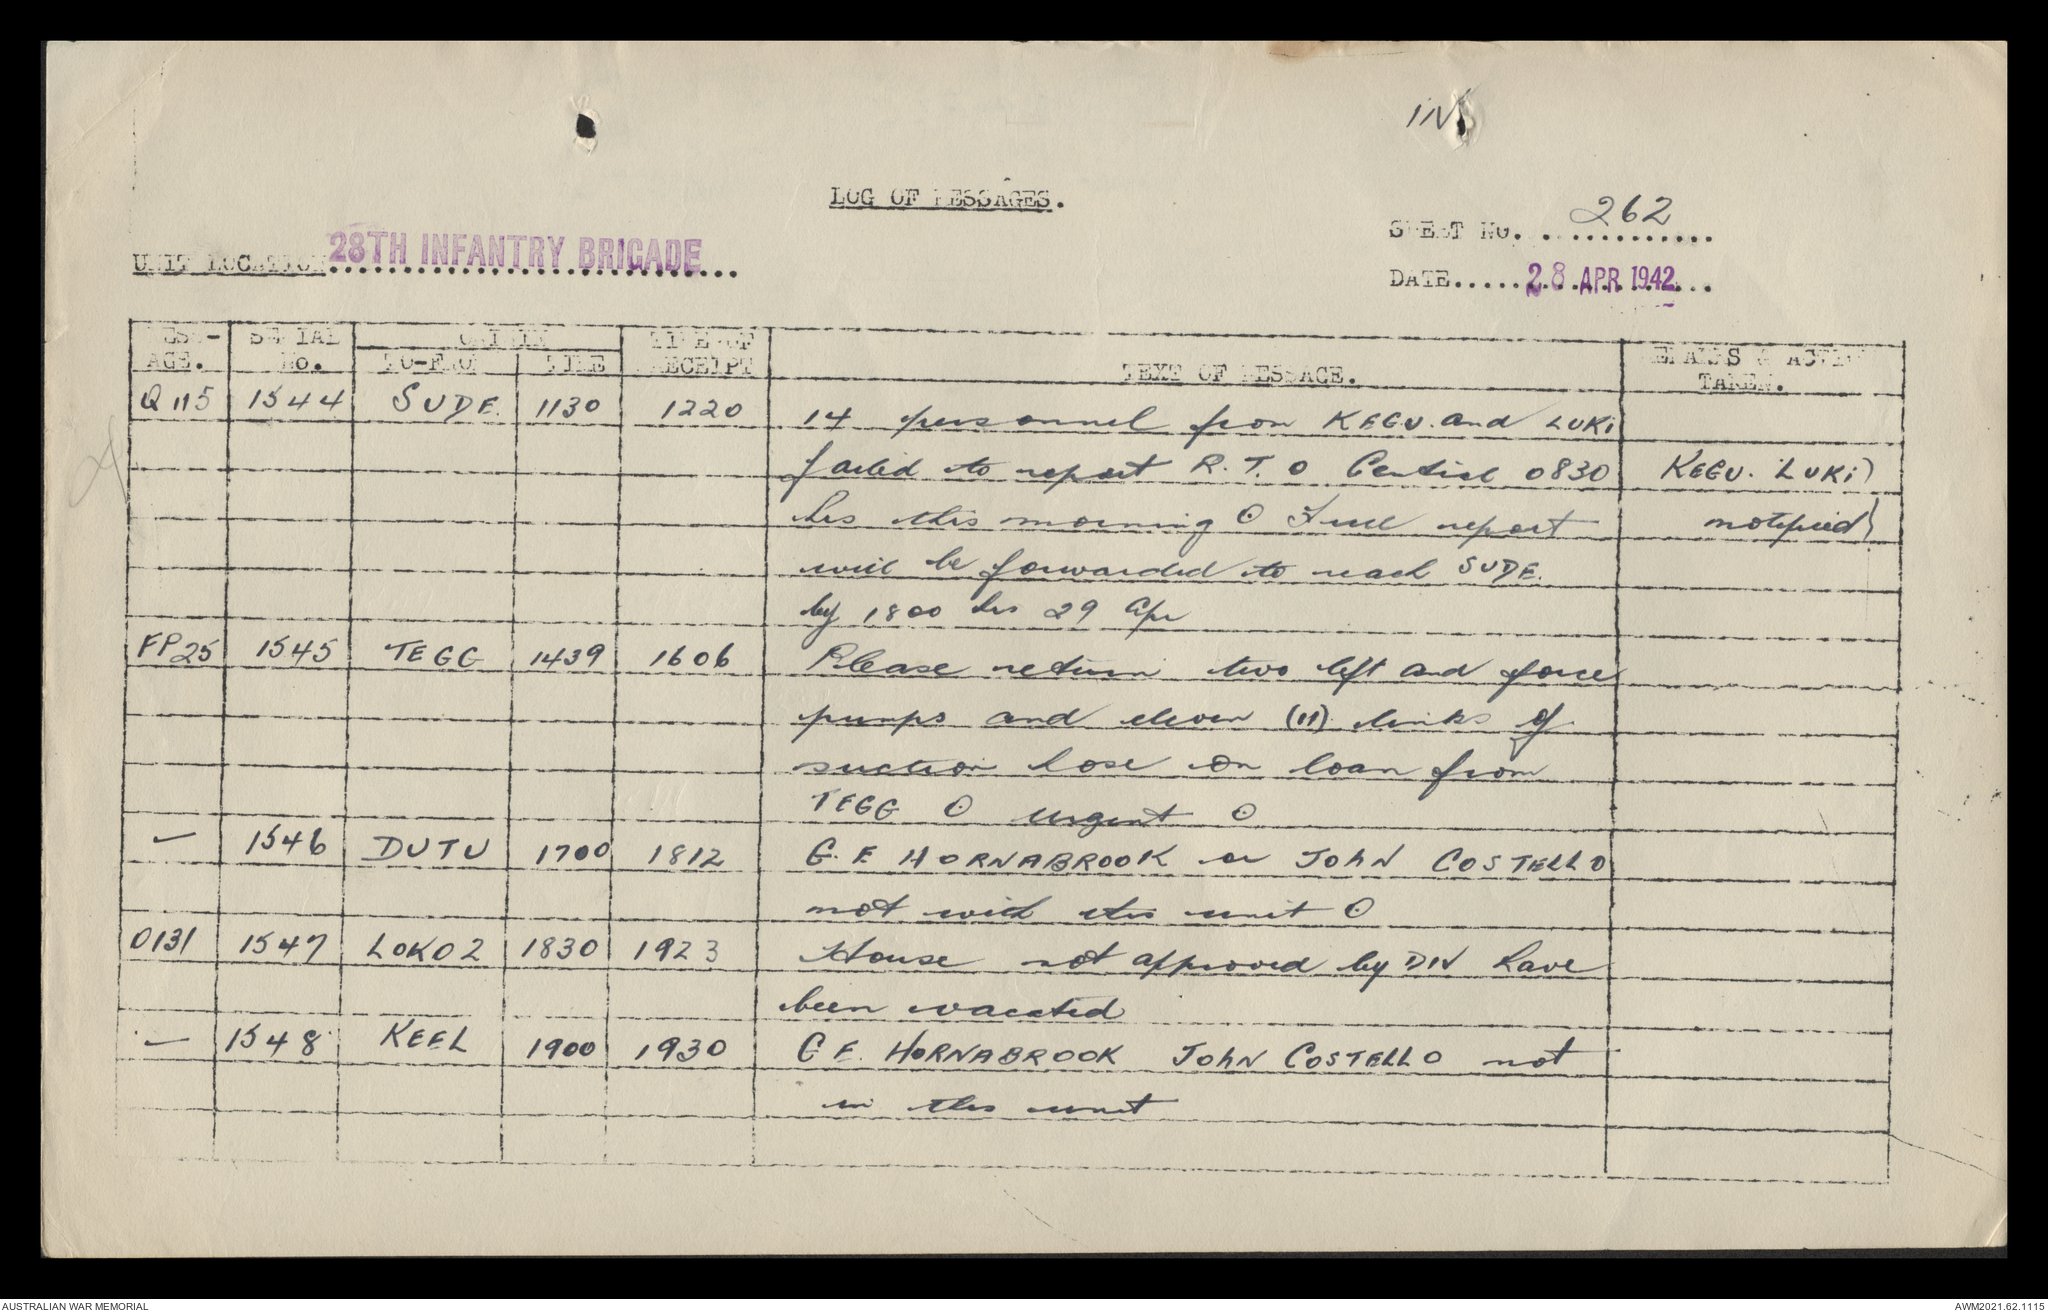 IN
LOG OF MESSAGES.
SHEET NO. 262
UNIT LOCATION 28TH INFANTRY BRIGADE
DATE 28 APR 1942
MESS-AGE. SERIAL No. ORIGIN TO-FROM TIME TIME OF RECEIPT TEXT OF MESSAGE. REMARKS & ACTION TAKEN.
Q115 1544 SUDE 1130 1220 14 personnel from KEGU. and LUKI
failed to report R.T.O Central 0830 KEGU. LUKI)
hrs this morning O Full report notified)
will be forwarded to reach SUDE.
by 1800 hrs 29 Apr
FP25 1545 TEGG 1439 1606 Please return two left and force
pumps and eleven (11) links of
suction hose on loan from
TEGG O urgent O
- 1546 DUTU 1700 1812 G.E HORNABROOK or JOHN COSTELLO
not with this unit O
O131 1547 LOKO2 1830 1923 House not approved by DIV have
been vacated
- 1548 KEEL 1900 1930 G E. HORNABROOK JOHN COSTELLO not
in this unit
AUSTRALIAN WAR MEMORIAL
AWM2021.62.1115